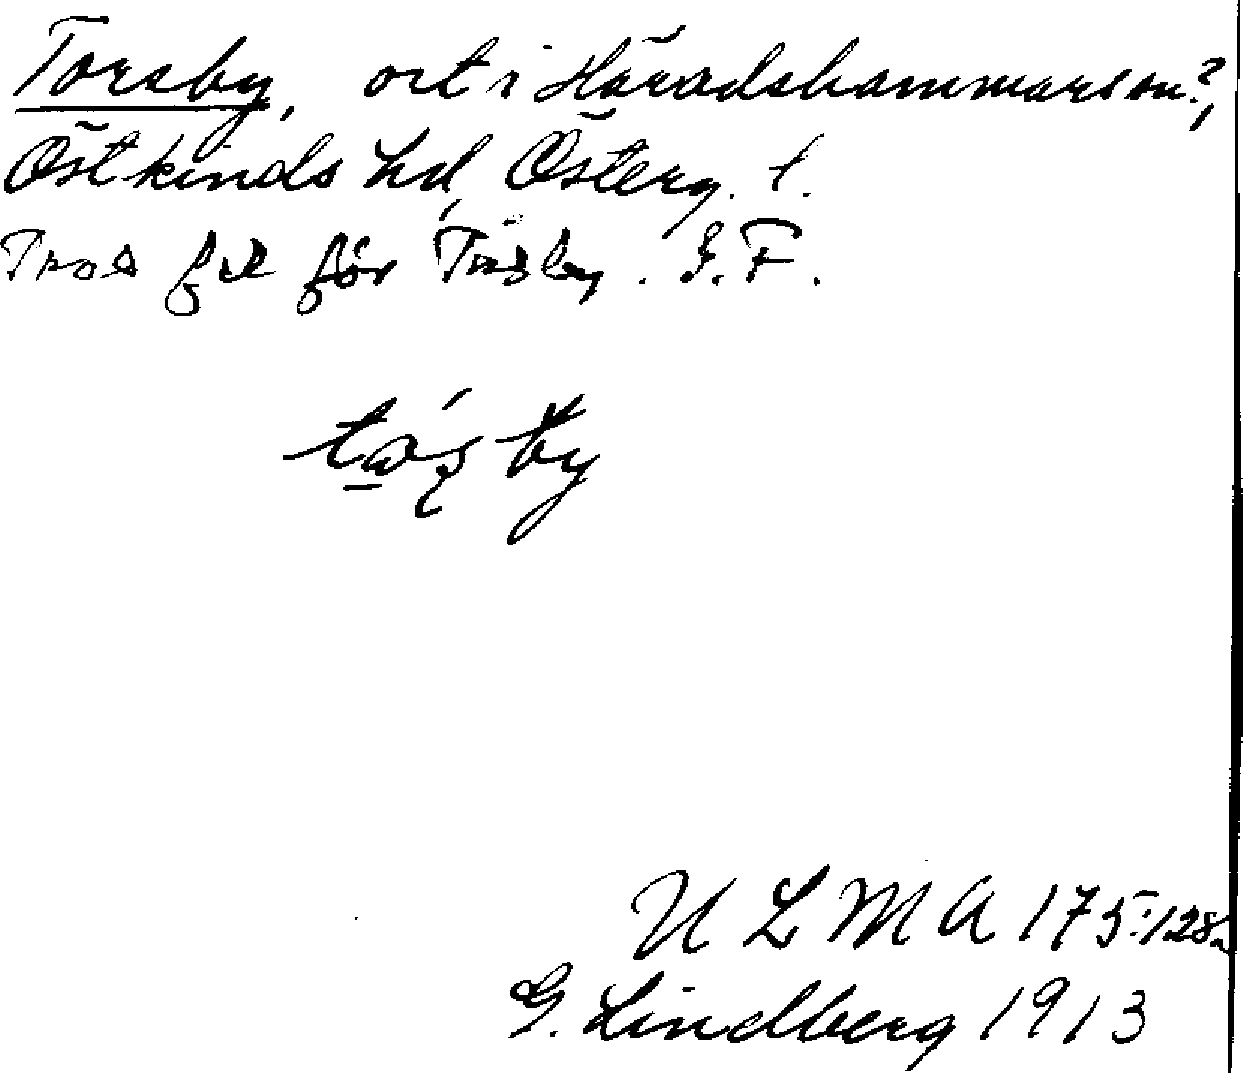 Torsby, ort i Häradshammars sn?,
Östkinds hd, Österg. l.
Tros fel för Tåsby. I.F.
by
ULMA 175:128
G. Lindberg 1913